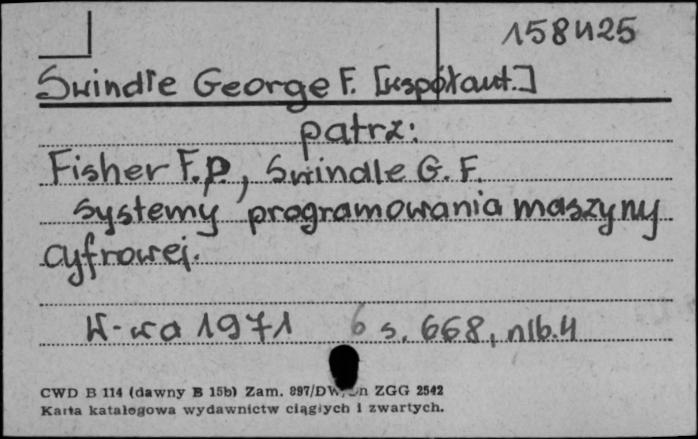 158425
Swindle George F. [współaut.]
patrz:
Fisher F.P., Swindle G.F.
Systemy programowania maszyny
cyfrowej.
W-wa 1971 s. 668, nlb. 4
CWD B 114 (dawny B 15b) Zam. 897/ ZGG 2542
Karta katalogowa wydawnictw ciągłych i zwartych.